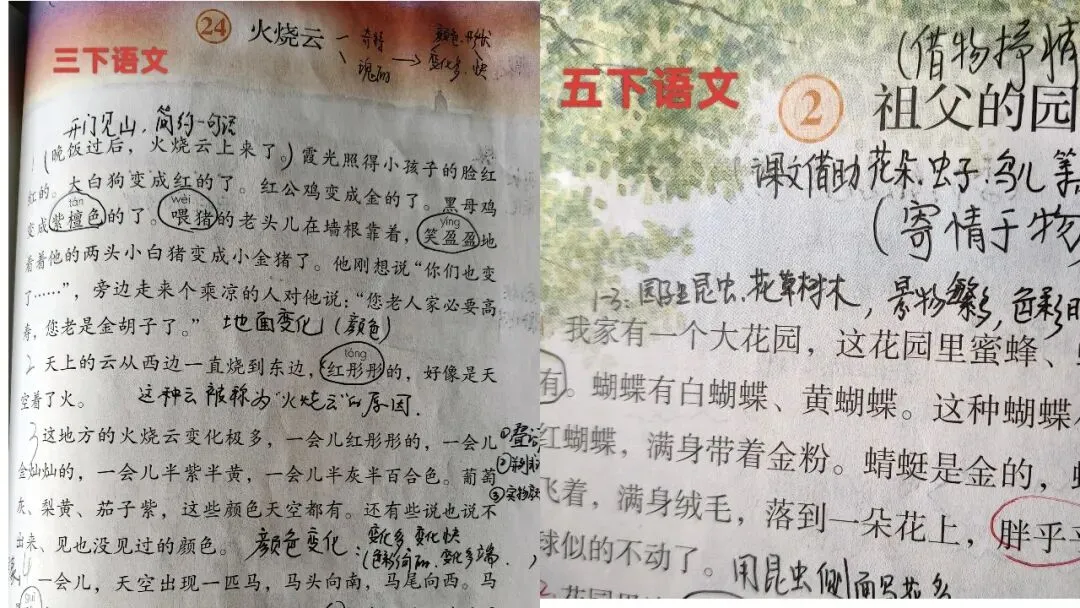 三下语文
24 火烧云
奇特
瑰丽
颜色.形状
变化多.快
开门见山,简约一句话
1(晚饭过后,火烧云上来了。)霞光照得小孩子的脸红
红的。大白狗变成红的了。红公鸡变成金的了。黑母鸡
tán wèi yíng
变成紫檀色的了。喂猪的老头儿在墙根靠着,笑盈盈地
看着他的两头小白猪变成小金猪了。他刚想说“你们也变
了……”,旁边走来个乘凉的人对他说:“您老人家必要高
寿,您老是金胡子了。” 地面变化(颜色)
tóng
2 天上的云从西边一直烧到东边,红彤彤的,好像是天
空着了火。 这种云被称为“火烧云”的原因.
3 这地方的火烧云变化极多,一会儿红彤彤的,一会儿
金灿灿的,一会儿半紫半黄,一会儿半灰半百合色。葡萄
灰、梨黄、茄子紫,这些颜色天空都有。还有些说也说不
出来、见也没见过的颜色。 颜色变化:变化多 变化快
变化多端
一会儿,天空出现一匹马,马头向南,马尾向西。马
五下语文
(借物抒情
2 祖父的园
课文借助花朵.虫子.鸟儿等
(寄情于物
1-3: 昆虫.花草树木,景物繁多,色彩
我家有一个大花园,这花园里蜜蜂、
有。蝴蝶有白蝴蝶、黄蝴蝶。这种蝴蝶
红蝴蝶,满身带着金粉。蜻蜓是金的,
飞着,满身绒毛,落到一朵花上,胖乎
球似的不动了。 用昆虫侧面写花多